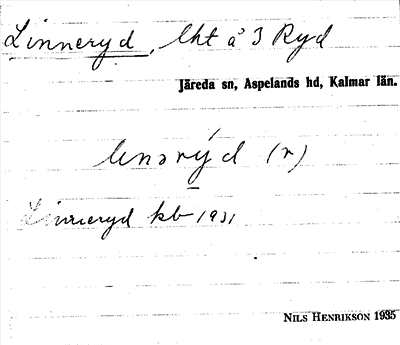 Linneryd, lht å 3 Ryd
Järeda sn, Aspelands hd, Kalmar län.
(r)
Linneryd kb 1931
NILS HENRIKSON 1935